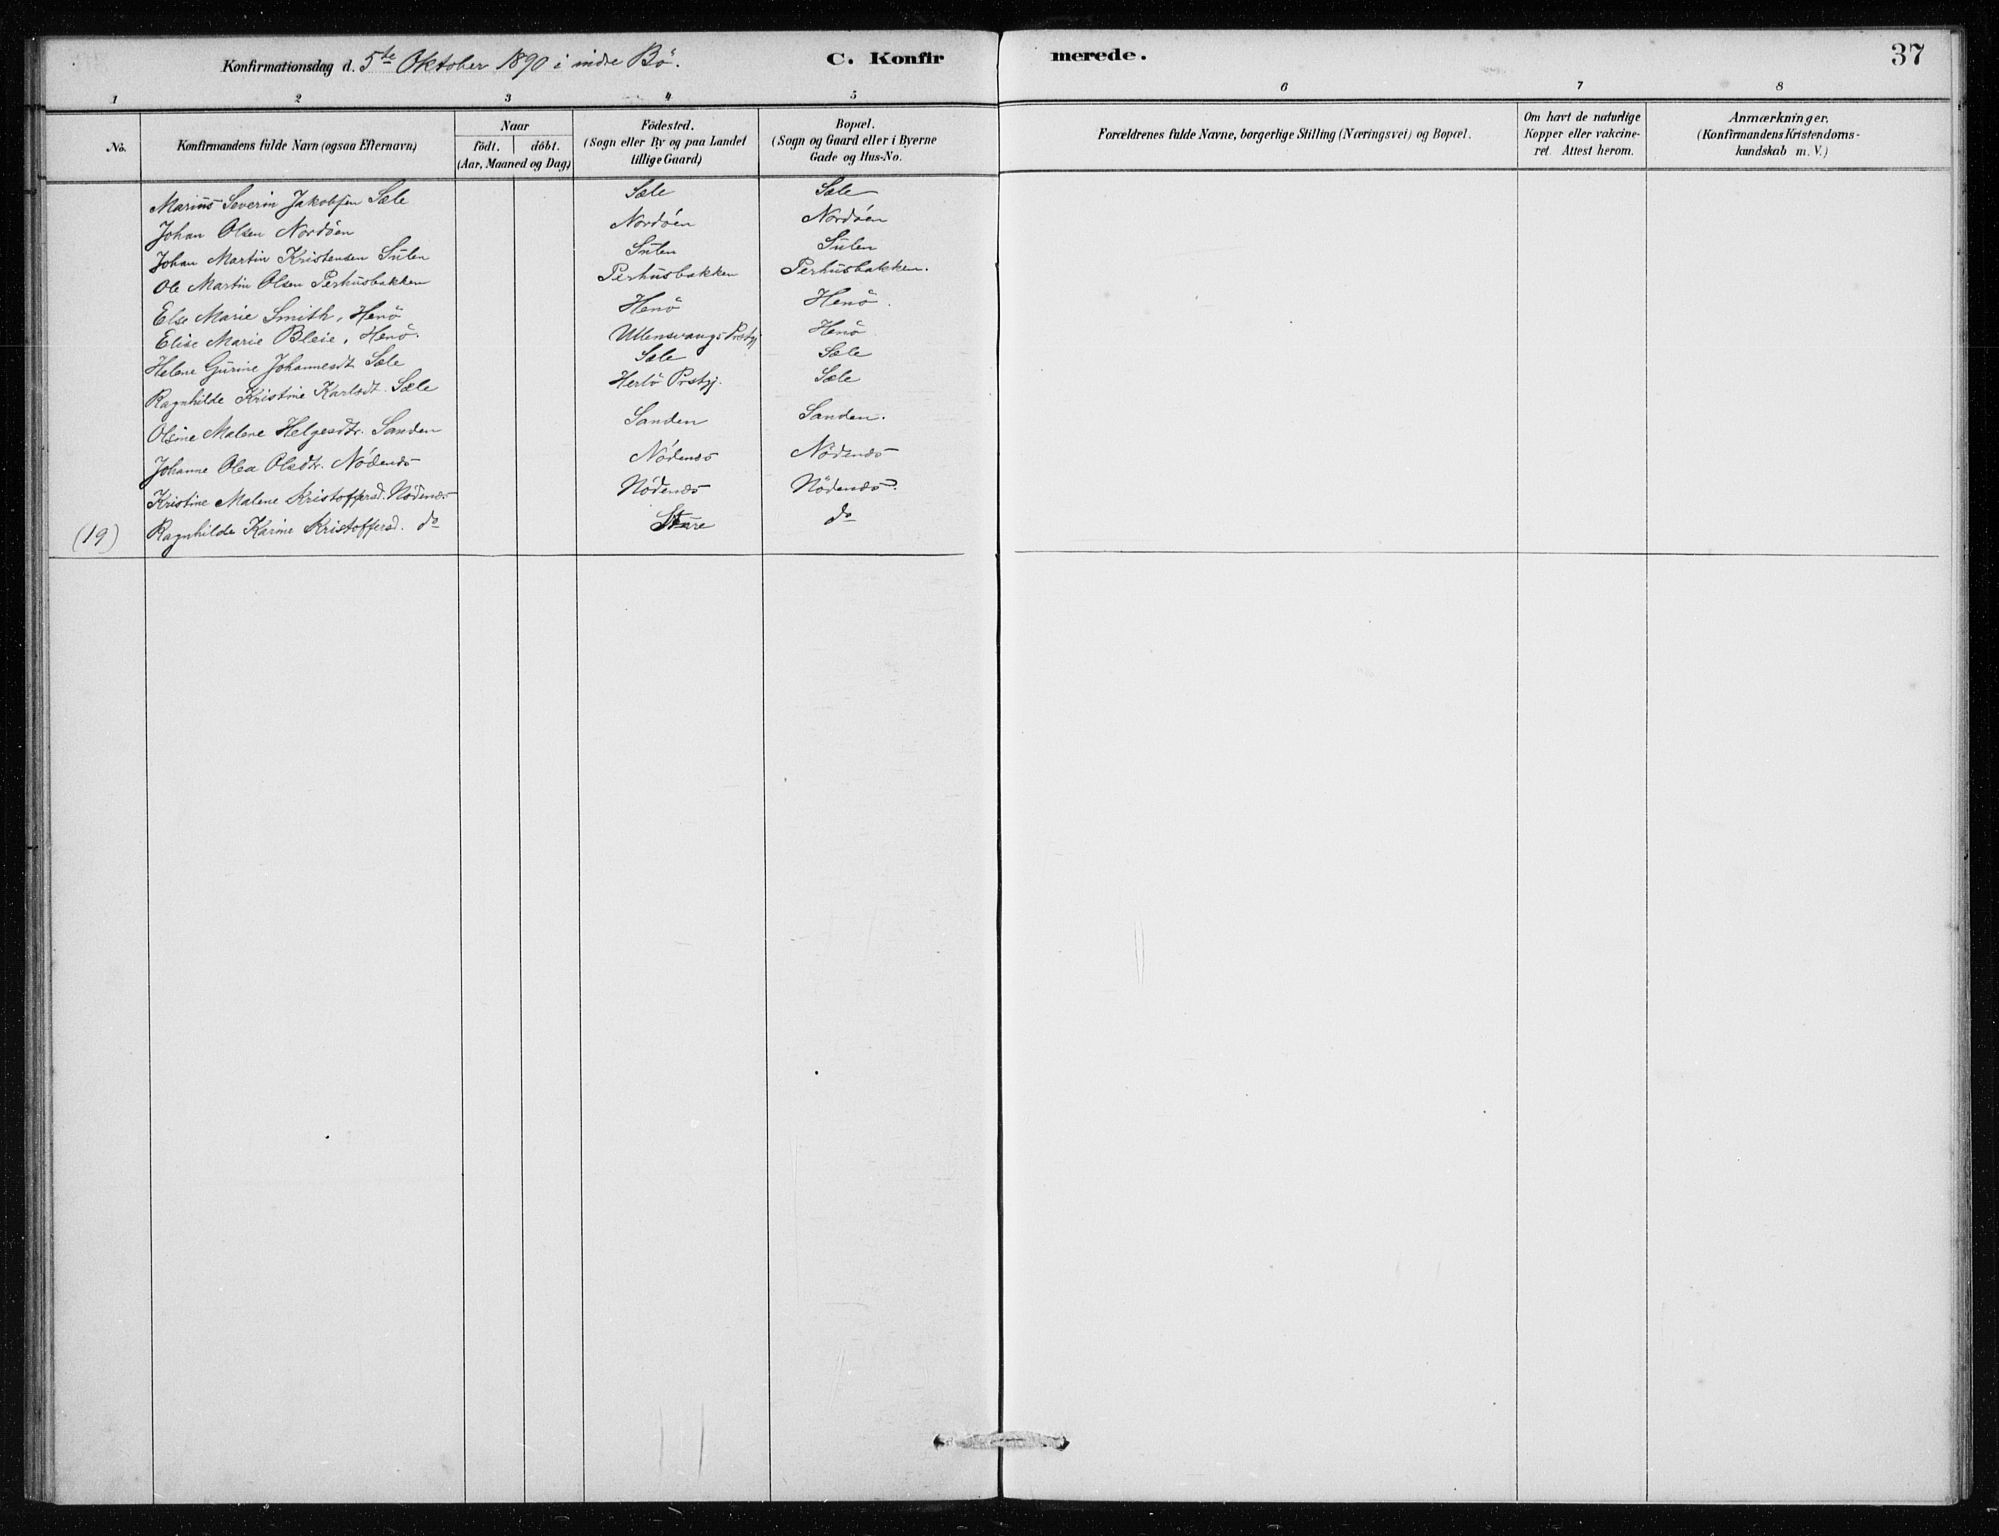 Konfirmationsdag d. 5te Oktober 1890 i indre Bö. C. Konfirmerede. 37
1 2 3 4 5 6 7 8
No. Konfirmandens fulde Navn (ogsaa Efternavn) Naar födt. döbt. (Aar, Maaned og Dag) Födested. (Sogn eller By og paa Landet tillige Gaard) Bopæl. (Sogn og Gaard eller i Byerne Gade og Hus-No. Forældrenes fulde Navne, borgerlige Stilling (Næringsvei) og Bopæl. Om havt de naturlige Kopper eller vakcineret. Attest herom. Anmærkninger. (Konfirmandens Kristendomskundskab m. V.)
Marius Severin Jakobsen Sæle Sæle Sæle
Johan Olsen Nordöen Nordöen Nordöen
Johan Martin Kristensen Sulen Sulen Sulen
Ole Martin Olsen Perhusbakken Perhusbakken Perhusbakken.
Else Marie Smith, Henö Henö Henö.
Elise Marie Bleie, Henö. Ullensvangs Prstgj Henö
Helene Gurine Johannesdt. Sæle Sæle Sæle
Ragnhilde Kristine Karlsdt. Sæle Herlö Prstgj. Sæle
Olsine Malene Helgesdtr. Sanden Sanden Sanden.
Johanne Olea Olsdtr. Nödenæs Nödenæs Nödenæs
Kristine Malene Kristoffersd. Nödenæs Nödenæs Nödenæs.
(19) Ragnhilde Karine Kristoffersd. do do